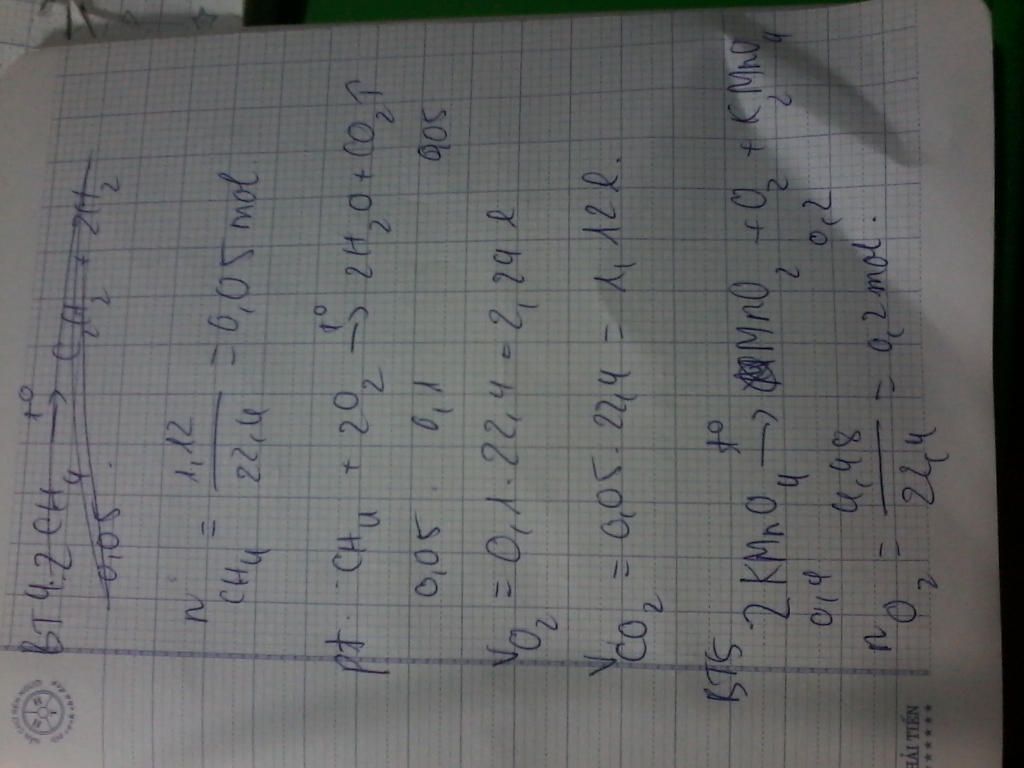 BT4. 2CH4 —t°→ C2H2 + 2H2
0,05.
n CH4 = 1,12 / 22,4 = 0,05 mol
pt: CH4 + 2O2 —t°→ 2H2O + CO2↑
0,05 . 0,1 0,05
VO2 = 0,1 . 22,4 = 2,24 l
VCO2 = 0,05 . 22,4 = 1,12 l.
BT5 2KMnO4 —t°→ MnO2 + O2 + K2MnO4
0,4 0,2
n O2 = 4,48 / 22,4 = 0,2 mol.
HẢI TIẾN